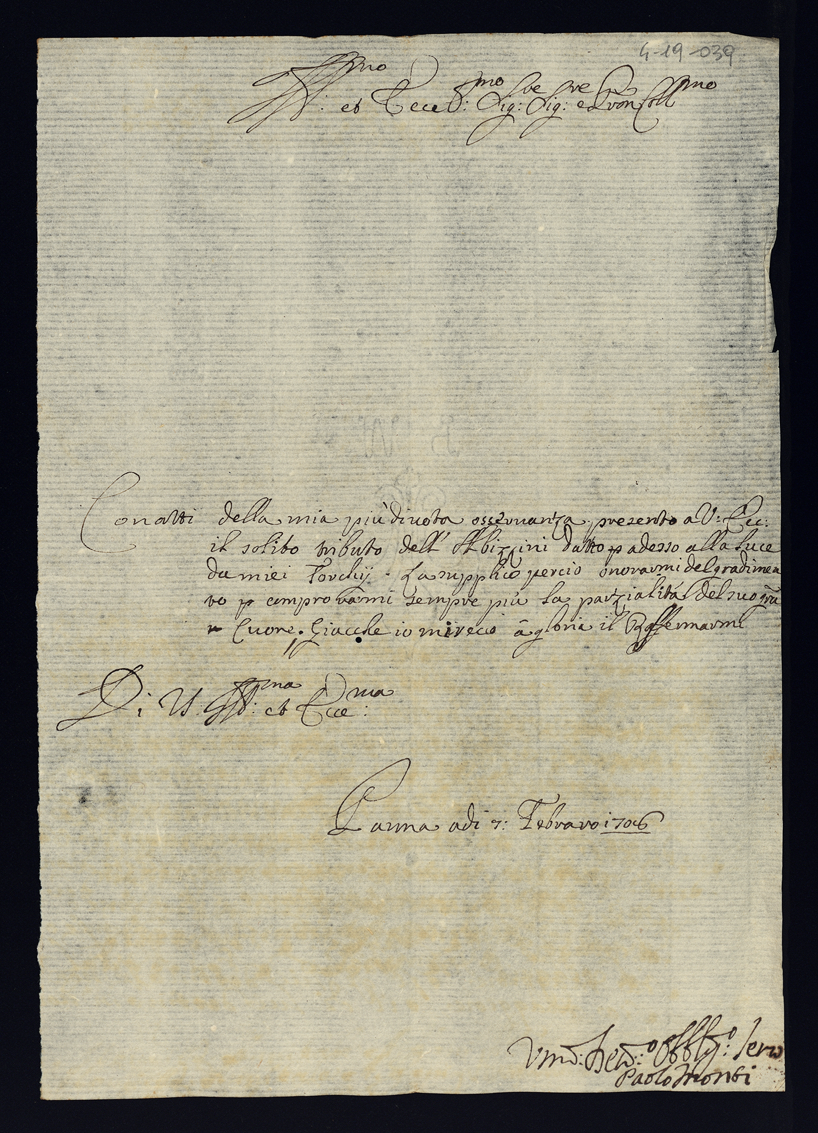 4-19-039
Ill:mo et Eccel:mo Sig:re Sig:re e Pron Coll:mo
Con atti della mia più divota osservanza presento a V: Ecc:
il solito tributo dell' Obizzini datto p adesso alla luce
da miei Torchij. La supplico percio onorarmi del gradimen
to p comprovarmi sempre più la parzialità del suo
Cuore. Giacche io mi reco à gloria il Raffermarmi
Di V. Ill:ma et Ecce:ma
Parma adi 7: Febraro 1706
Um:o Dev:o Obblig:o Serv
Paolo Monti